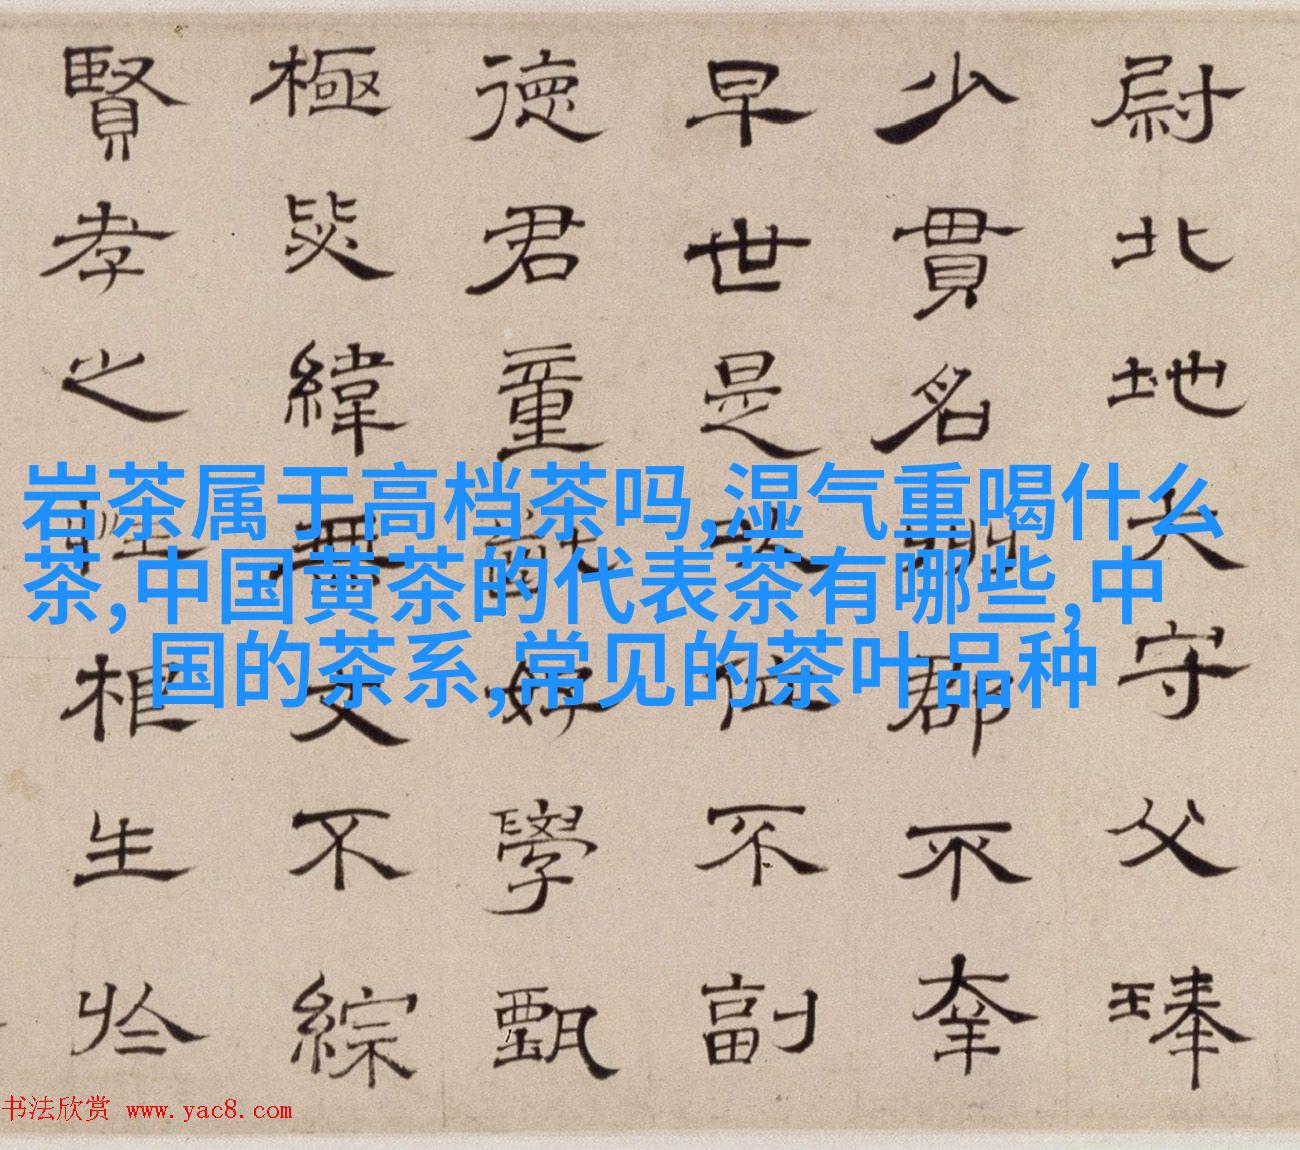 尉北地大守父琫
少貫名州郡不幸
早世是以位不副
德君童齔好學甄
極毖緯無文不綜
賢孝之性根生於
岩茶属于高档茶吗,湿气重喝什么
茶,中国黄茶的代表茶有哪些,中
国的茶系,常见的茶叶品种
书法欣赏 www.yac8.com